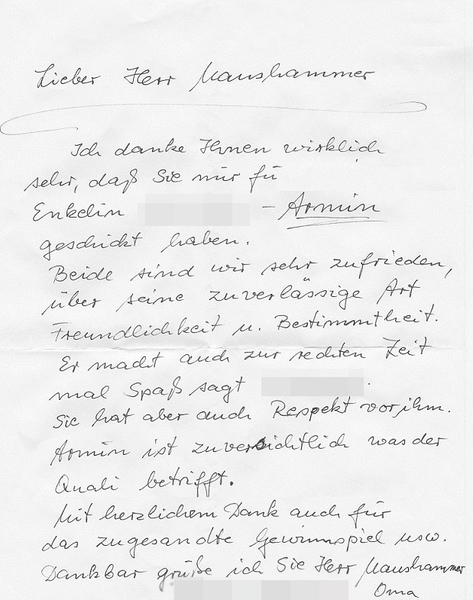 Lieber Herr Maushammer
Ich danke Ihnen wirklich
sehr, daß Sie mir fü
Enkelin - Armin
geschickt haben.
Beide sind wir sehr zufrieden,
über seine zuverlässige Art
Freundlichkeit u. Bestimmtheit.
Er macht auch zur rechten Zeit
mal Spaß sagt .
Sie hat aber auch Respekt vor ihm.
Armin ist zuversichtlich was der
Quali betrifft.
Mit herzlichem Dank auch für
das zugesandte Gewinnspiel usw.
Dankbar grüße ich Sie Herr Maushammer
Oma